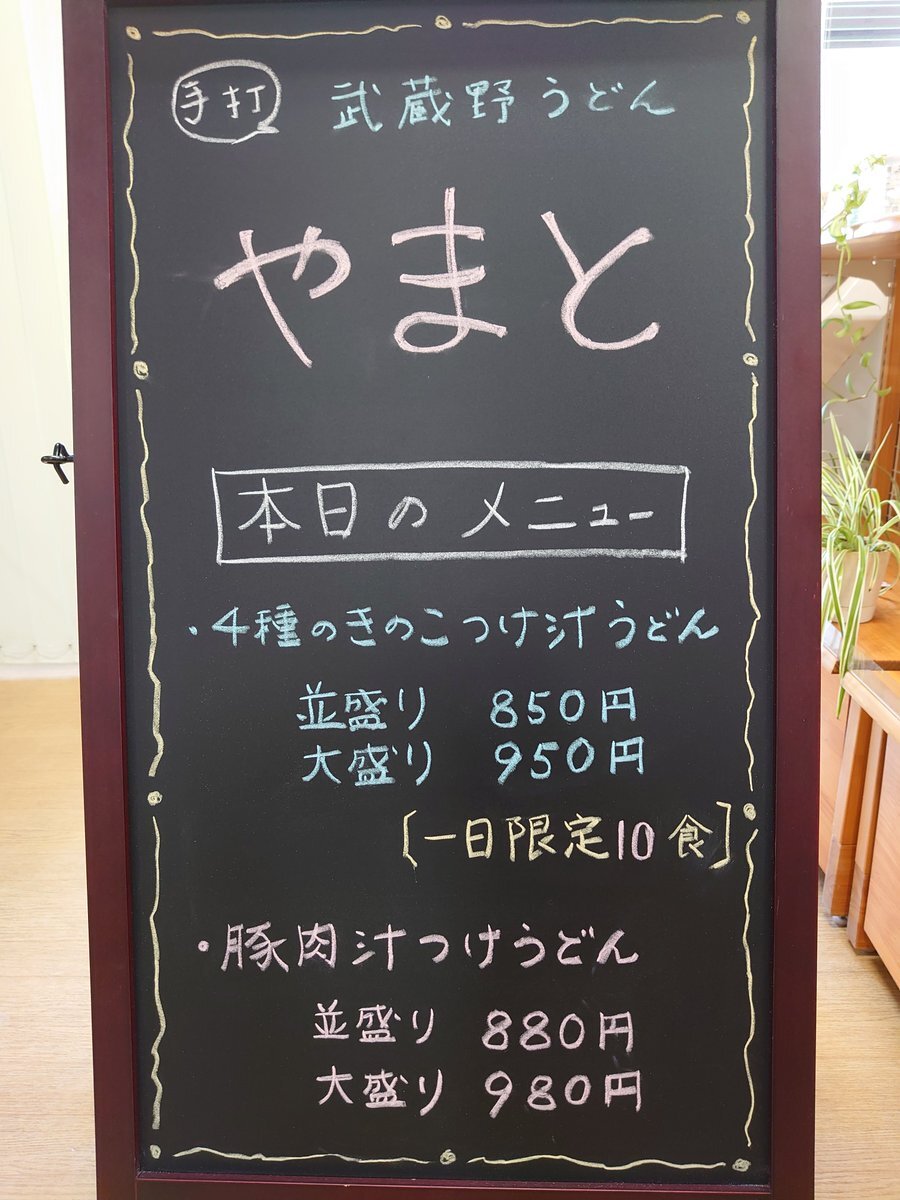 手打 武蔵野うどん
やまと
本日のメニュー
・4種のきのこつけ汁うどん
並盛り 850円
大盛り 950円
[一日限定10食]
・豚肉汁つけうどん
並盛り 880円
大盛り 980円